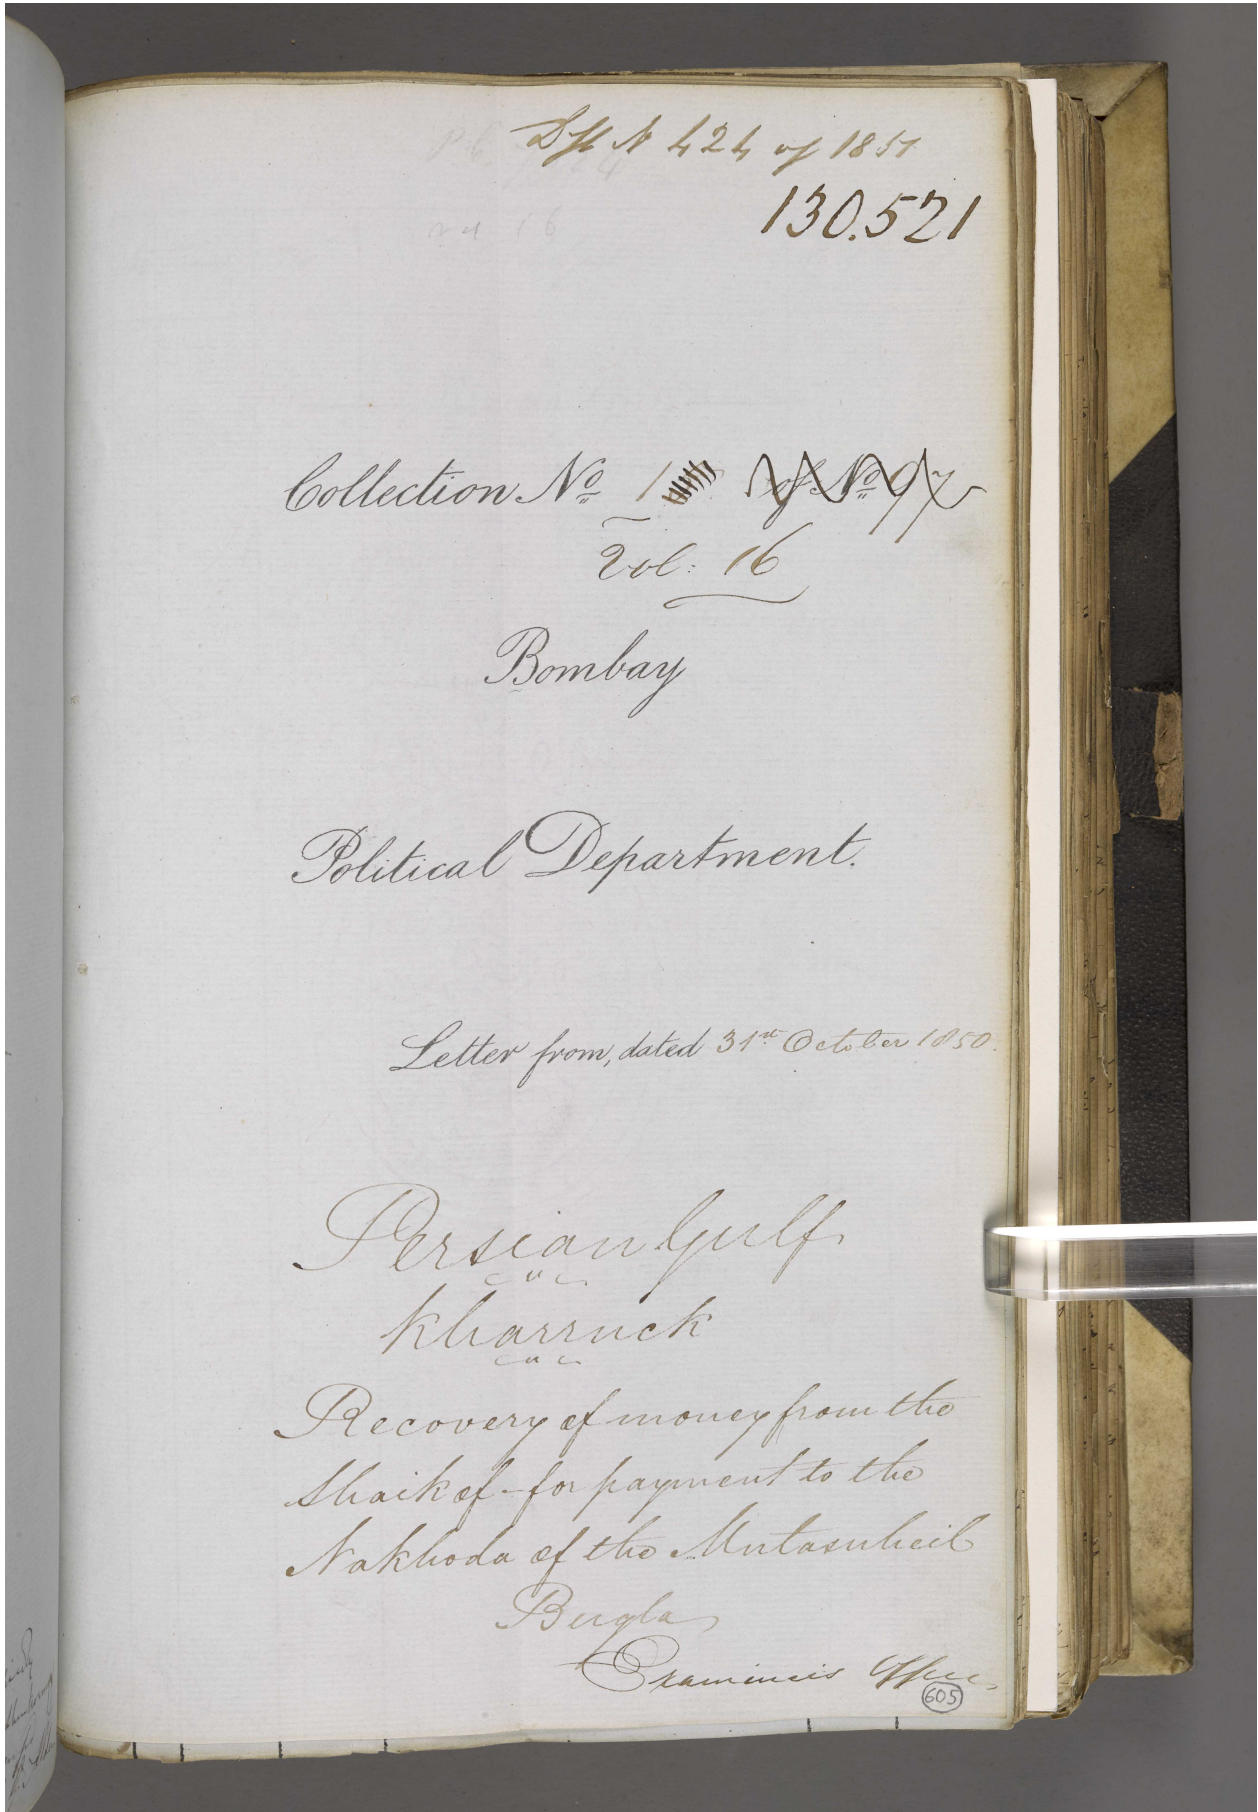 Dft N 424 of 1851
130.521
Collection No 1 of No 97
Vol: 16
Bombay
Political Department.
Letter from, dated 31st October 1850.
Persian Gulf
Kharruck
Recovery of money from the
Shaik of - for payment to the
Nakhoda of the Mutasuheil
Bugla
Examiner's Office.
605